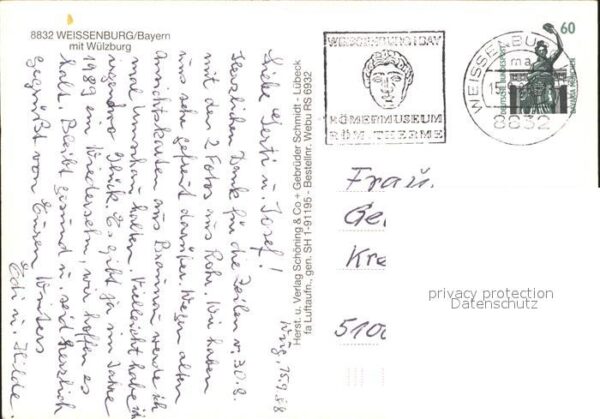 8832 WEISSENBURG/Bayern
mit Wülzburg
Wzbg, 15.9.88
Liebe Gerti u. Josef!
Herzlichen Dank für die Zeilen v. 30.8.
mit den 2 Fotos aus Rohr. Wir haben
uns sehr gefreut darüber. Wegen alten
Ansichtskarten aus Braunau werde ich
mal Umschau halten. Vielleicht habe ich
irgendwo Glück. Es gibt ja im Jahre
1989 ein Wiedersehn, wir hoffen es
halt. Bleibt gesund u. seid herzlich
gegrüßt von Euren Winters
Edi u. Hilde.
Herst. u. Verlag Schöning & Co + Gebrüder Schmidt - Lübeck
fa Luftaufn., gen. SH 1-91195 - Bestellnr. Webu RS 6932
WEISSENBURG I BAY
RÖMERMUSEUM
RÖM. THERME
WEISSENBU
ma
15
8832
60
Frau
Ge
Kre
5100
privacy protection
Datenschutz